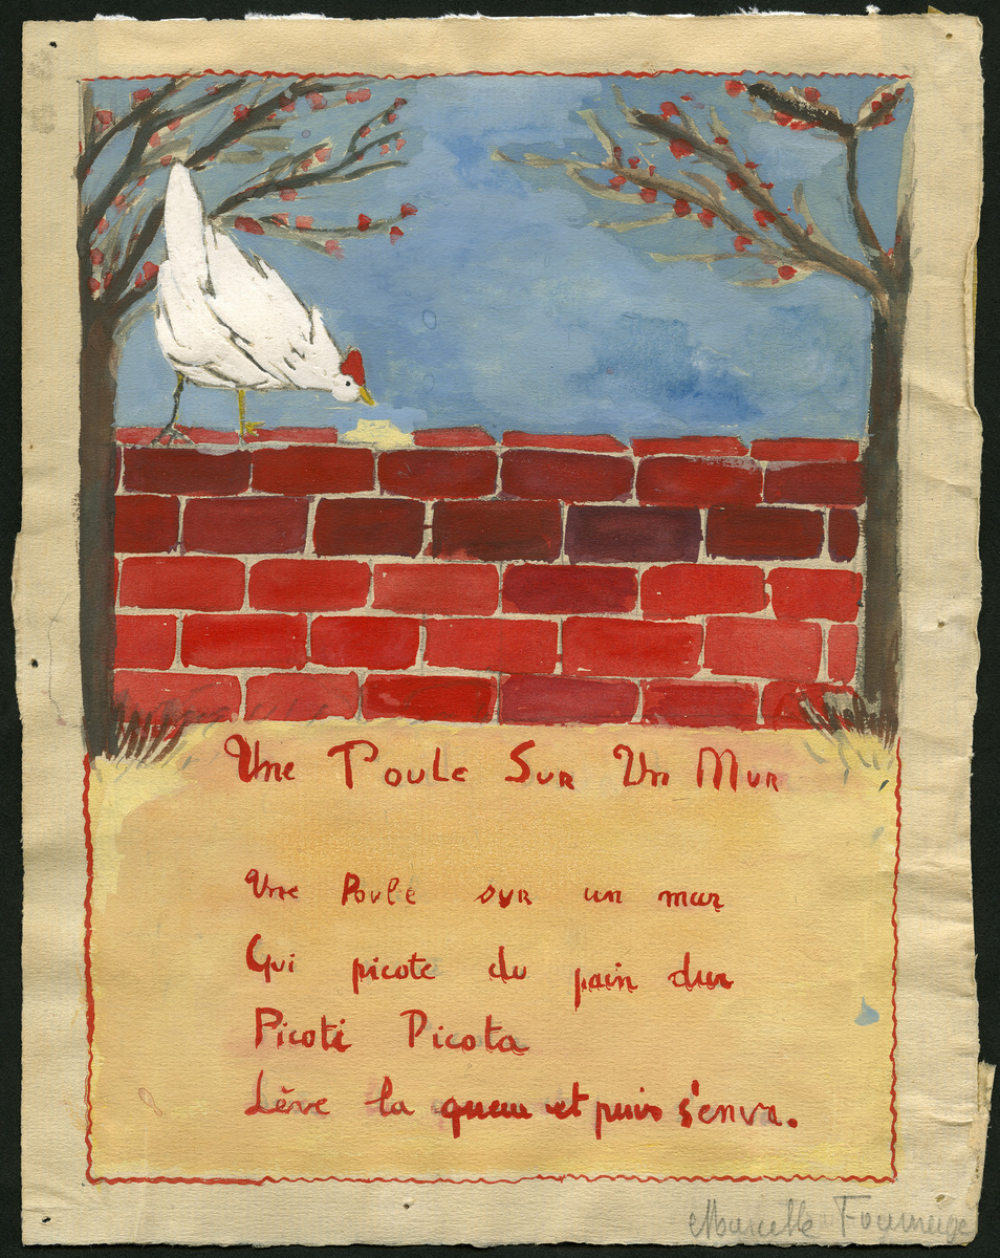 Une Poule Sur Un Mur
Une Poule sur un mur
Qui picote du pain dur
Picoti Picota
Lève la queue et puis s'enva.
Marcelle